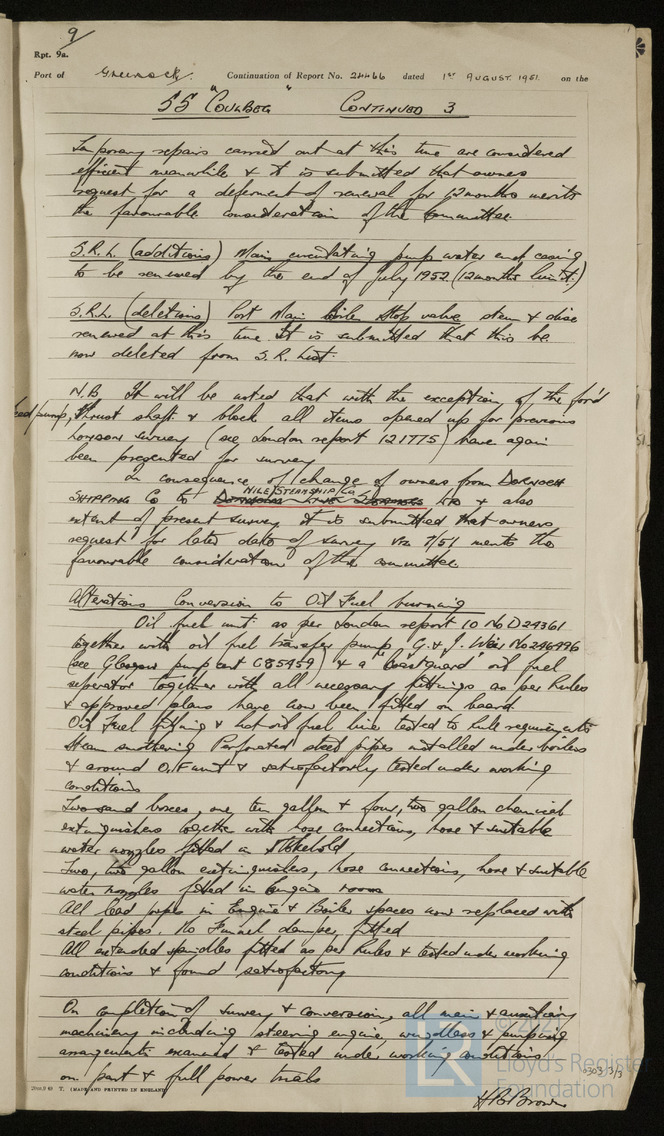 9
Rpt. 9a.
Port of Greenock. Continuation of Report No. 24466 dated 1st AUGUST. 1951. on the
SS "COULBEG" CONTINUED 3
Temporary repairs carried out at this time are considered
efficient meanwhile & it is submitted that owners
request for a deferment of renewal for 12 months merits
the favourable consideration of the Committee.
S.R.L. (additions) Main circulating pump water end casing
to be renewed by the end of July 1952 (12 months limit.)
S.R.L. (deletions) Port Main Boiler Stop valve stem & disc
renewed at this time. It is submitted that this be
now deleted from S.R. List.
N.B. It will be noted that with the exception of the for'd
pump, thrust shaft & block all items opened up for previous
London survey (see London report 121775) have again
been presented for survey
In consequence of change of owners from DORNOCH
NILE STEAMSHIP Co
SHIPPING Co to LTD & also
extent of present survey it is submitted that owners
request for later date of survey viz 7/51 merits the
favourable consideration of the committee.
Alterations Conversion to Oil Fuel burning
Oil fuel unit as per London report 10 No D24361
together with oil fuel transfer pump, G. & J. Weir No 246996
(see Glasgow pump cert C85459) & a "Coastguard" oil fuel
seperator together with all necessary fittings as per Rules
& approved plans have now been fitted on board.
Oil Fuel fitting & hot oil fuel line tested to rule requirements
Steam smothering Perforated steel pipes installed under boilers
& around O.F unit & satisfactorily tested under working
conditions
Two sand boxes, one ten gallon & four, two gallon chemical
extinguishers together with hose connections, hose & suitable
water nozzles fitted in stokehold,
Two, two gallon extinguishers, hose connections, hose & suitable
water nozzles fitted in Engine room
All lead pipes in Engine & Boiler spaces now replaced with
steel pipes. No Funnel damper fitted
All extended spindles fitted as per Rules & tested under working
conditions & found satisfactory
On completion of survey & conversion, all main & auxiliary
machinery including steering engine, windlass & pumping
arrangements examined & tested under working conditions
on part & full power trials
H B Brown
T. (MADE AND PRINTED IN ENGLAND)
0303/3/3
LR
Lloyd's Register
Foundation